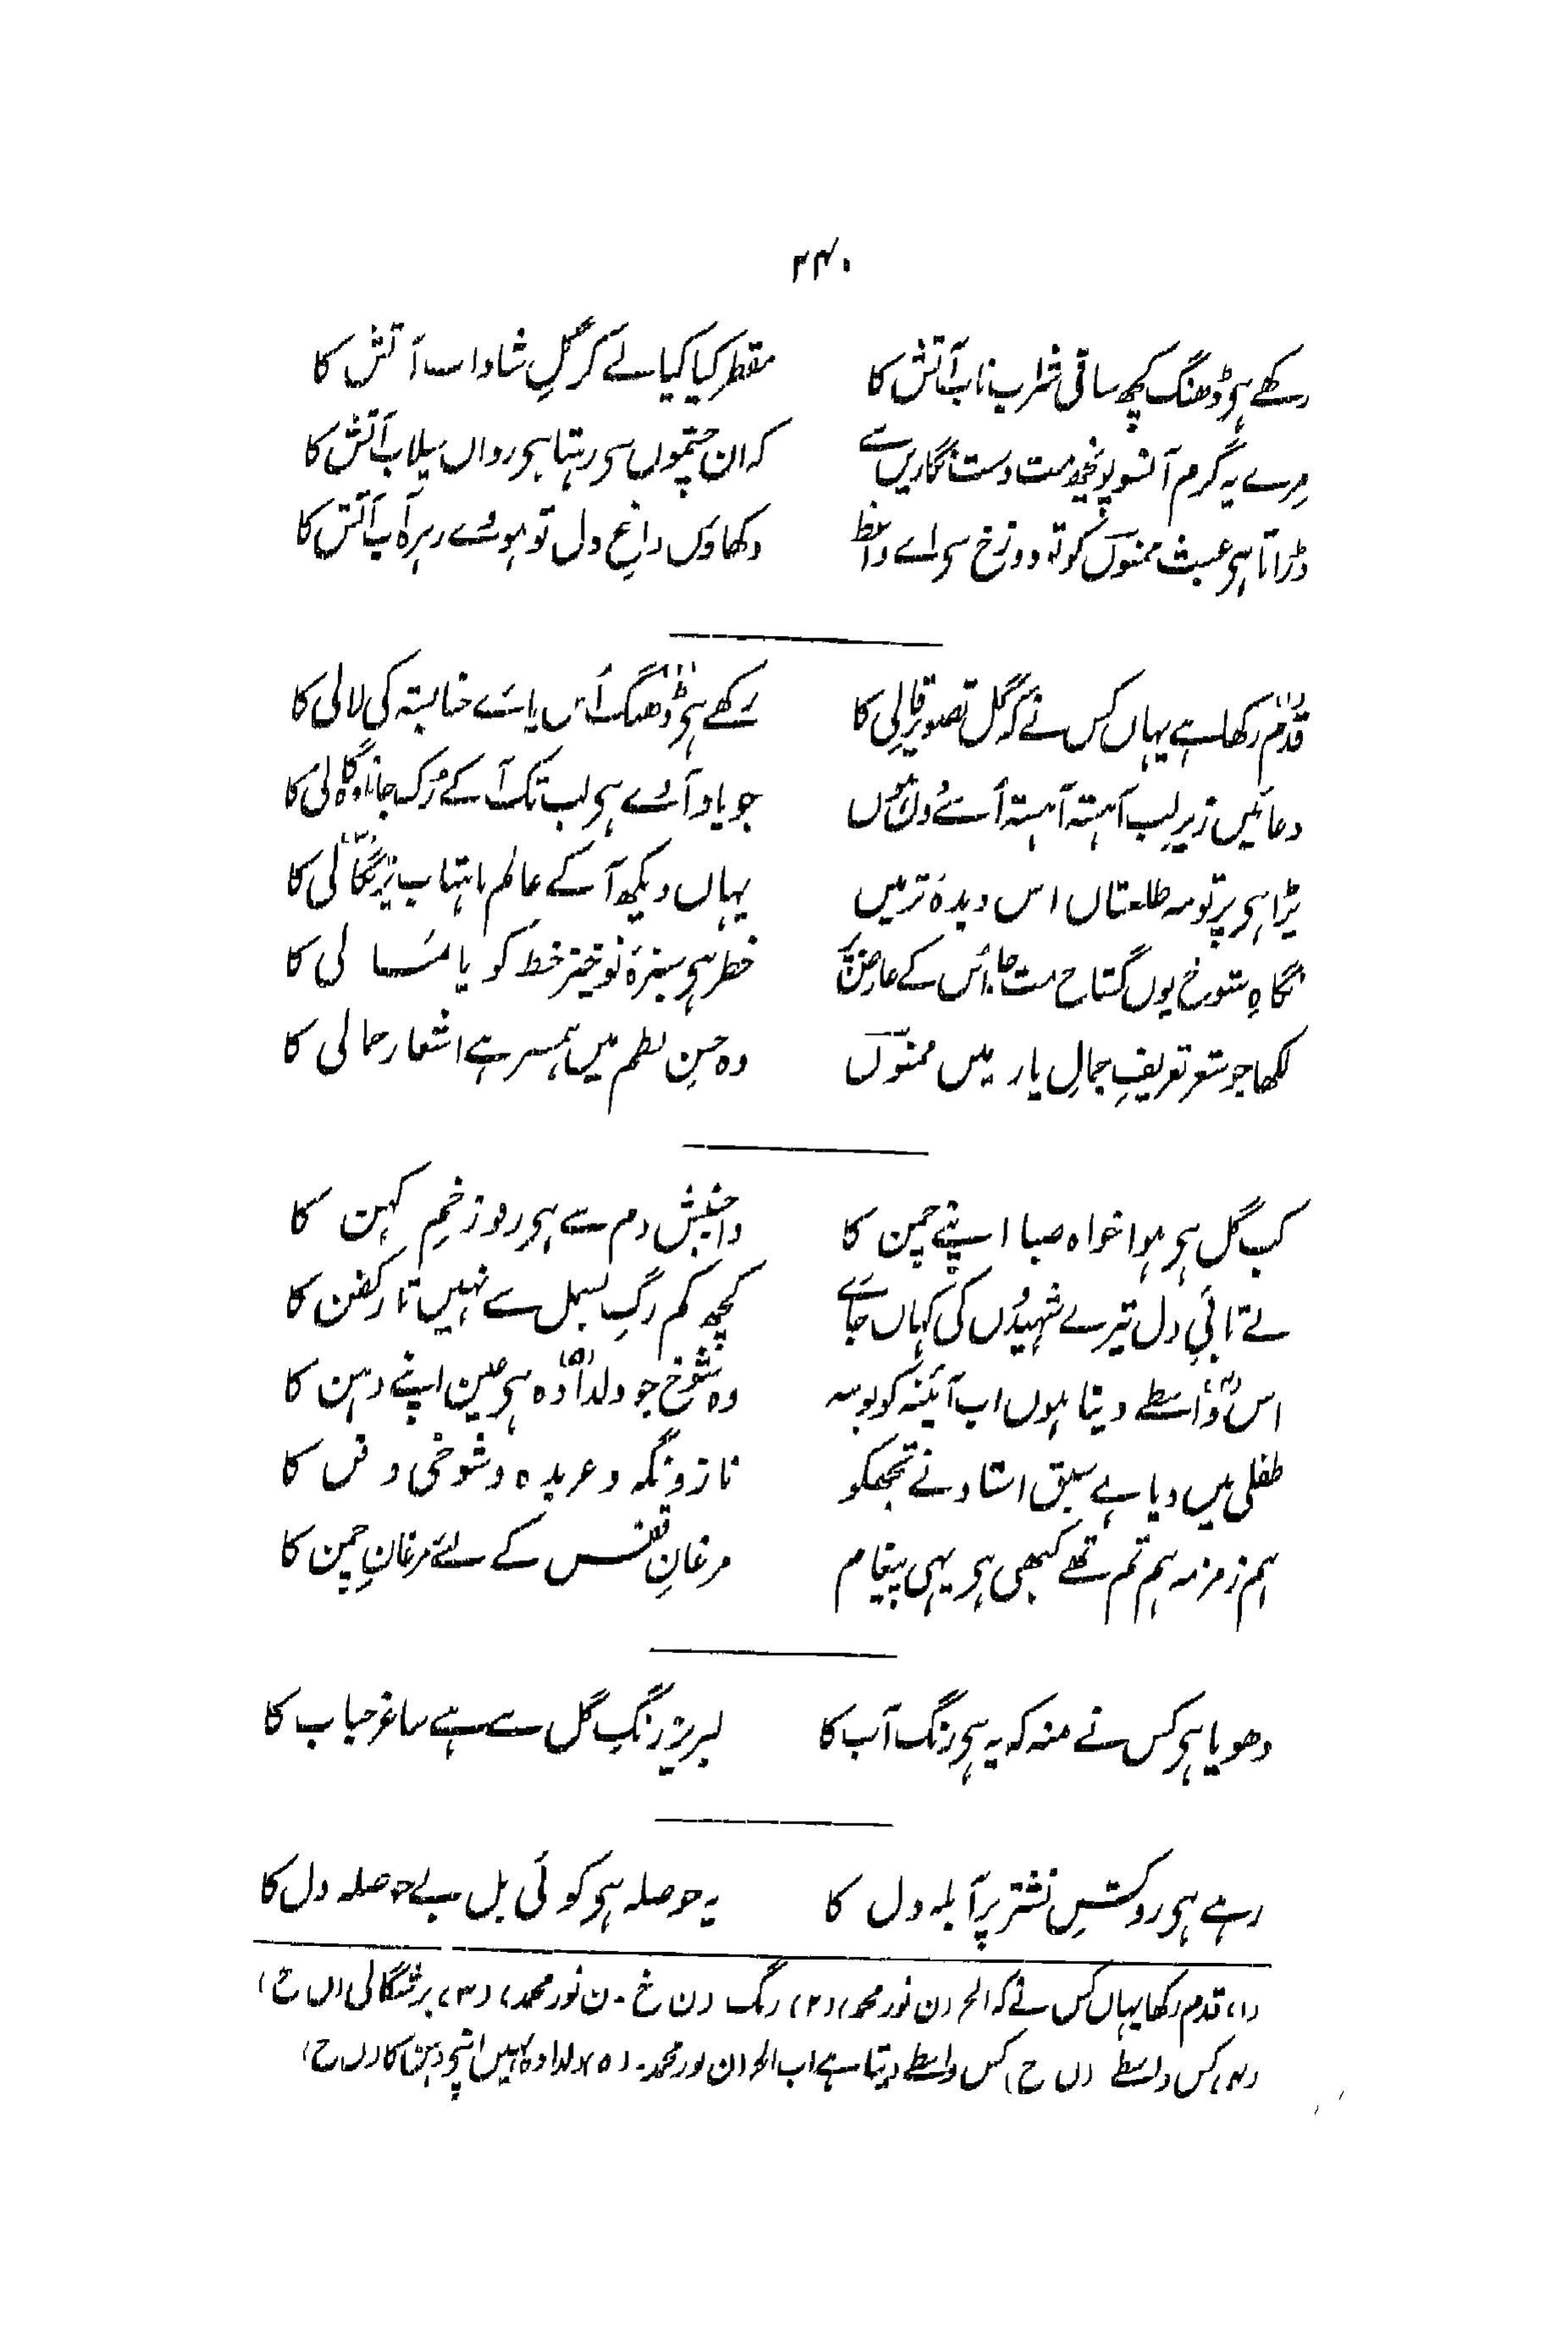 ۲۴۰
رکھے ہی ڈھنگ کچھ ساقی شراب ناب آتش کا مقطر کیا کیا لے کر گلِ شاداب آتش کا
مرے یہ گرم آنسو پونچھ مت دست نگاریں سے کہ ان چشموں سی رہتا ہی رواں سیلاب آتش کا
ڈراتا ہی عبث ممنوںؔ کو تو دوزخ سی اے واعظ دکھاؤں داغِ دل تو ہووے زہرہ آب آتش کا
قدم رکھا ہے یہاں کس نے کہ گل تصویر قالی کا رکھے ہی ڈھنگ اُس پائے حنا بستہ کی لالی کا
دعائیں زیرِ لب آہستہ آہستہ اُسے دوں ہوں جو یاد آئے ہی لب تک آ کے رُک جانا وہ گالی کا
پڑا ہی پرتو مہ طلعتاں اس دیدۂ تر میں یہاں دیکھ آ کے عالم ماہتاب برشگالی کا
نگاہِ شوخ یوں گستاخ مت جا اُس کے عارض پر خطر ہی سبزۂ نوخیز خط کو پائمالی کا
لکھا جو شعر تعریفِ جمالِ یار میں ممنوںؔ وہ حسنِ نظم میں ہمسر ہے اشعار جمالی کا
کب گل ہی ہوا خواہ صبا اپنے چمن کا وا جنبش دم سے ہی رو زخمِ کہن کا
بے تابیِ دل تیرے شہیدوں کی کہاں جائے کچھ کم رگِ بسمل سے نہیں تار کفن کا
اس واسطے دیتا ہوں اب آئینہ کو بوسہ وہ شوخ جو دلدادہ ہی عین اپنے دہن کا
طفلی میں دیا ہے سبق استاد نے تجھکو ناز و نگہ و عربدہ و شوخی و فن کا
ہم زمزمہ ہم تم تھے کبھی ہی یہی پیغام مرغانِ قفس کے لئے مرغانِ چمن کا
دھویا ہی کس نے منہ کہ یہ ہی رنگ آب کا لبریز رنگِ گل سے ہے ساغر حباب کا
رہے ہی روکشِ نشتر پر آبلہ دل کا یہ حوصلہ ہی کوئی بل بے حوصلہ دل کا
(۱) قدم رکھا یہاں کس نے کہ الخ (ن نور محمد) (۲) رنگ (ن خ - ن نور محمد) (۳) برشگالی (ن ح)
(۴) کس واسطے (ن ح) کس واسطے دیتا ہے اب الخ (ن نور محمد - (۵) دلدادہ نہیں اپنی دہن کا (ن ح)